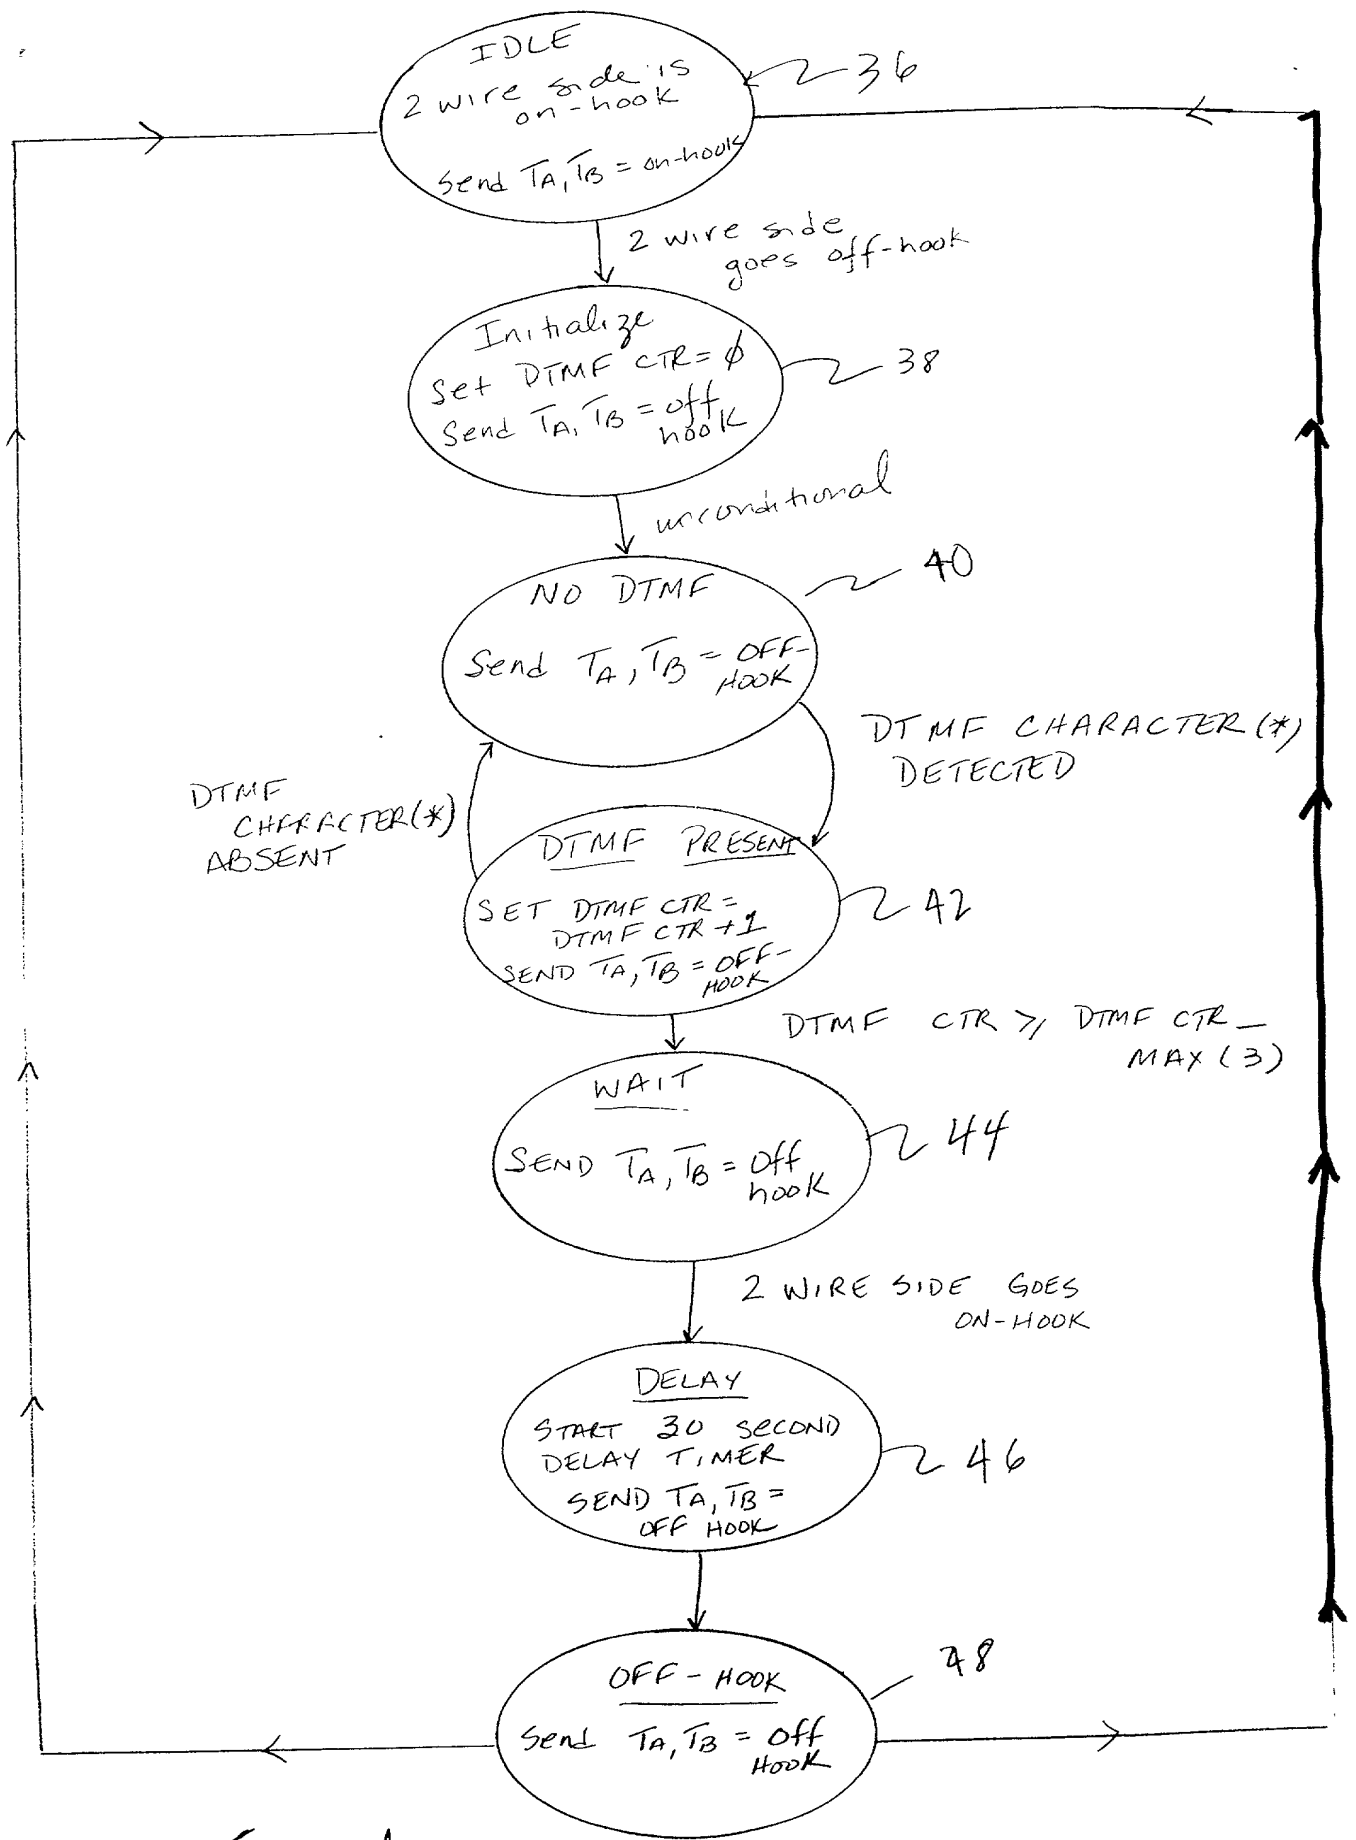 IDLE
2 wire side is
on-hook
Send TA, TB = on-hook
36
2 wire side
goes off-hook
Initialize
Set DTMF CTR = ϕ
Send TA, TB = off
hook
38
unconditional
NO DTMF
Send TA, TB = OFF-
HOOK
40
DTMF CHARACTER (*)
DETECTED
DTMF
CHARACTER (*)
ABSENT
DTMF PRESENT
SET DTMF CTR =
DTMF CTR +1
SEND TA, TB = OFF-
HOOK
42
DTMF CTR ≥ DTMF CTR_
MAX (3)
WAIT
SEND TA, TB = Off
hook
44
2 WIRE SIDE GOES
ON-HOOK
DELAY
START 30 SECOND
DELAY TIMER
SEND TA, TB =
OFF HOOK
46
OFF-HOOK
Send TA, TB = Off
HOOK
48